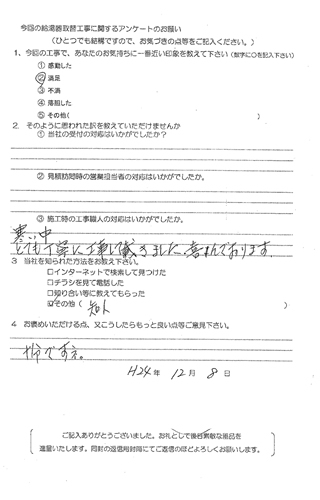 今回の給湯器取替工事に関するアンケートのお願い
(ひとつでも結構ですので、お気づきの点等をご記入ください。)
1、今回の工事で、あなたのお気持ちに一番近い印象を教えて下さい(数字に○を記入下さい)
① 感動した
② 満足
③ 不満
④ 落胆した
⑤ その他(　　　)
2. そのように思われた訳を教えていただけませんか
① 当社の受付の対応はいかがでしたか?
② 見積訪問時の営業担当者の対応はいかがでしたか。
③ 施工時の工事職人の対応はいかがでしたか。
寒い中
とても丁寧に工事して戴きました、喜んでおります。
3 当社を知られた方法をお教え下さい。
□インターネットで検索して見つけた
□チラシを見て電話した
□知り合い等に教えてもらった
☑その他( 知人 )
4 お褒めいただける点、又こうしたらもっと良い点等ご意見下さい。
十分ですネ。
H24年 12月 8日
ご記入ありがとうございました。お礼として後日素敵な粗品を
進呈いたします。同封の返信用封筒にてご返信のほどよろしくお願いします。